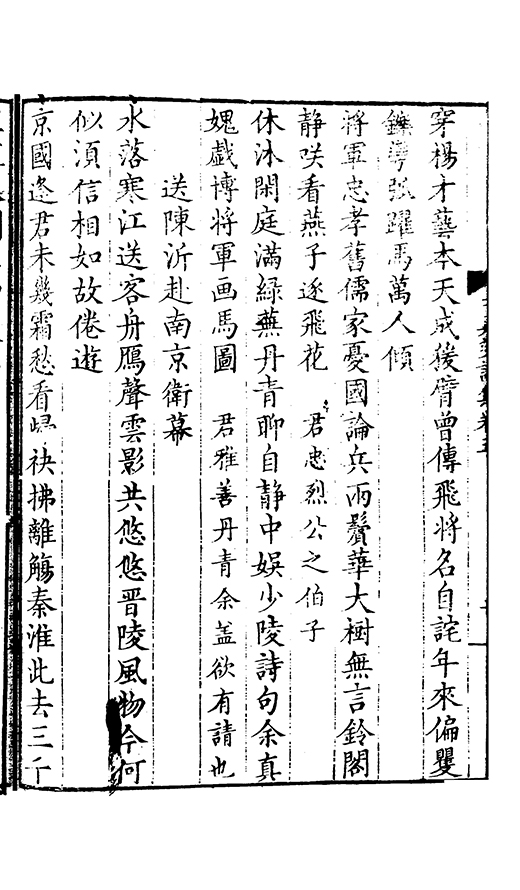 穿楊才藝本天成猨臂曾傳飛將名自詫年來偏矍
鑠彎弧躍馬萬人傾
將軍忠孝舊儒家憂國論兵兩鬢華大樹無言鈴閣
静咲看燕子逐飛花　君忠烈公之伯子
休沐閑庭滿綠蕪丹青聊自静中娛少陵詩句余真
媿戯博將軍画馬圖　君雅善丹青余盖欲有請也
送陳沂赴南京衛幕
水落寒江送客舟鴈聲雲影共悠悠晋陵風物今何
似湏信相如故倦遊
京國逢君未幾霜愁看歸袂拂離觴秦淮此去三千